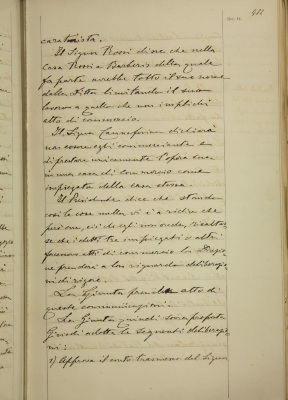 caratista.
Il Signor Rossi dice che nella
Casa Rossi e Barberis della quale
fa parte avrebbe tolto il suo nome
dalla Ditta limitando il suo
lavoro a quello che non implichi
atto di commercio.
Il Signor dichiara
non essere egli commerciante e
di prestare unicamente l'opera sua
in una casa di commercio come
impiegato della casa stessa.
Il Presidente dice che stando
così le cose nulla vi è a ridire che
però ove, ciò che egli non crede, risultas-
se che i detti tre impiegati o altri
facessero atti di commercio la Dire
prenderà a loro riguardo deliberazio
ni di rigore.
La Giunta prende atto di
queste comunicazioni.
La Giunta quindi sovra proposta
adotta le seguenti deliberazio
ni:
1) Approva il conto trasmesso del Signor